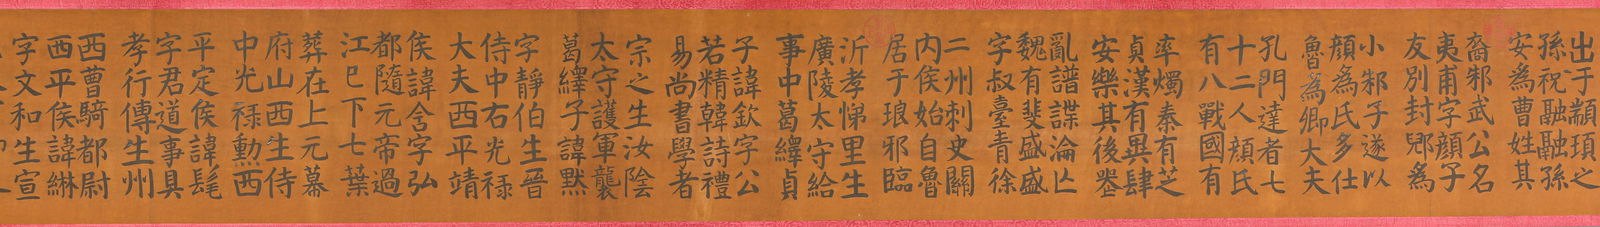 出于顓頊之
孫祝融融孫
安為曹姓其
裔邾武公名
夷甫字顏子
友別封郳為
小邾子遂以
顏為氏多仕
魯為卿大夫
孔門達者七
十二人顏氏
有八戰國有
率燭秦有芝
貞漢有異肆
安樂其後喪
亂譜諜淪亡
魏有斐盛盛
字叔臺青徐
二州刺史關
內侯始自魯
居于琅邪臨
沂孝悌里生
廣陵太守給
事中葛繹貞
子諱欽字公
若精韓詩禮
易尚書學者
宗之生汝陰
太守護軍襲
葛繹子諱默
字靜伯生晉
侍中右光祿
大夫西平靖
侯諱含字弘
都隨元帝過
江已下七葉
葬在上元幕
府山西生侍
中光祿勳西
平定侯諱髦
字君道事具
孝行傳生州
西曹騎都尉
西平侯諱綝
字文和生宣